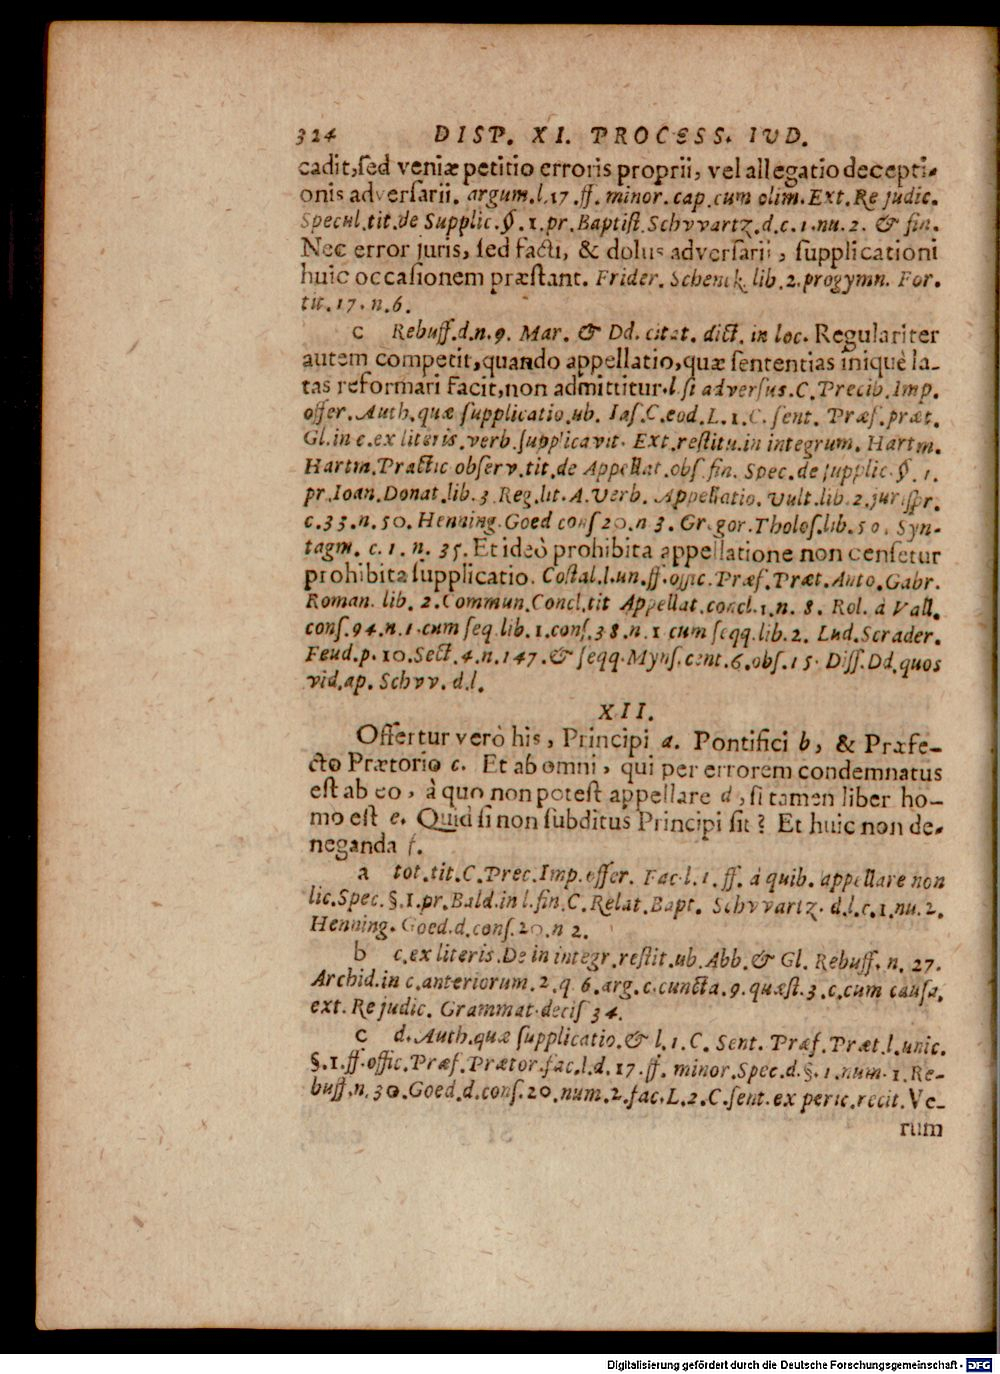 324 DISP. XI. PROCESS. IUD.
cadit, ſed veniæ petitio erroris proprii, vel allegatio decepti-
onis adverſarii. argum. l. 17. ff. minor. cap. cum olim. Ext. Re judic.
Specul. tit. de Supplic. §. 1. pr. Baptiſt. Schvvartz. d. c. 1. nu. 2. & fin.
Nec error juris, ſed facti, & dolus adverſarii, ſupplicationi
huic occaſionem præſtant. Frider. Schenck. lib. 2. progymn. For.
tit. 17. n. 6.
c Rebuff. d. n. 9. Mar. & Dd. citat. dict. in loc. Regulariter
autem competit, quando appellatio, quæ ſententias iniquè la-
tas reformari facit, non admittitur. l. ſi adverſus. C. Precib. Imp.
offer. Auth. quæ ſupplicatio. ub. Iaſ. C. eod. L. 1. C. ſent. Præf. præt.
Gl. in c. ex literis. verb. ſupplicavit. Ext. reſtitu. in integrum. Hartm.
Hartm. Practic obſerv. tit. de Appellat. obſ. fin. Spec. de ſupplic. §. 1.
pr. Ioan. Donat. lib. 3 Reg. lit. A. Verb. Appellatio. Vult. lib. 2. juriſpr.
c. 33. n. 50. Henning. Goed conſ 20. n 3. Gregor. Tholoſ. lib. 50. Syn-
tagm. c. 1. n. 35. Et ideò prohibita appellatione non cenſetur
prohibita ſupplicatio. Coſtal. l. un. ff. offic. Præf. Præt. Anto. Gabr.
Roman. lib. 2. Commun. Concl. tit Appellat. concl. 1. n. 8. Rol. à Vall.
conſ. 94. n. 1. cum ſeq. lib. 1. conſ. 38. n. 1 cum ſeqq. lib. 2. Lud. Scrader.
Feud. p. 10. Sect. 4. n. 147. & ſeqq. Mynſ. cent. 6. obſ. 15. Diſſ. Dd. quos
vid. ap. Schvv. d. l.
XII.
Offertur verò his, Principi a. Pontifici b, & Præfe-
cto Prætorio c. Et ab omni, qui per errorem condemnatus
eſt ab eo, à quo non poteſt appellare d, ſi tamen liber ho-
mo eſt e. Quid ſi non ſubditus Principi ſit? Et huic non de-
neganda f.
a tot. tit. C. Prec. Imp. offer. Fac. l. 1. ff. à quib. appellare non
lic. Spec. §. 1. pr. Bald. in l. fin. C. Relat. Bapt. Schvvartz. d. l. c. 1. nu. 2.
Henning. Goed. d. conſ. 20. n 2.
b c. ex literis. De in integr. reſtit. ub. Abb. & Gl. Rebuff. n. 27.
Archid. in c. anteriorum. 2. q. 6. arg. c. cuncta. 9. quæſt. 3. c. cum cauſa.
ext. Re judic. Grammat. deciſ 34.
c d. Auth. quæ ſupplicatio. & l. 1. C. Sent. Præf. Præt. l. unic.
§. 1. ff. offic. Præf. Prætor. fac. l. d. 17. ff. minor. Spec. d. §. 1. num. 1. Re-
buff. n. 30. Goed. d. conſ. 20. num. 2. fac. L. 2. C. ſent. ex peric. recit. Ve-
rum
Digitalisierung gefördert durch die Deutsche Forschungsgemeinschaft - DFG